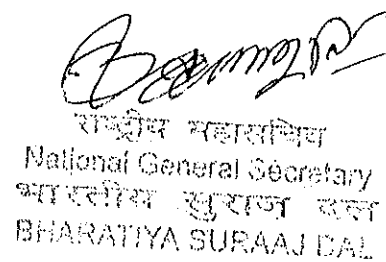 राष्ट्रीय महासचिव
National General Secretary
भारतीय सुराज दल
BHARATIYA SURAAJ DAL